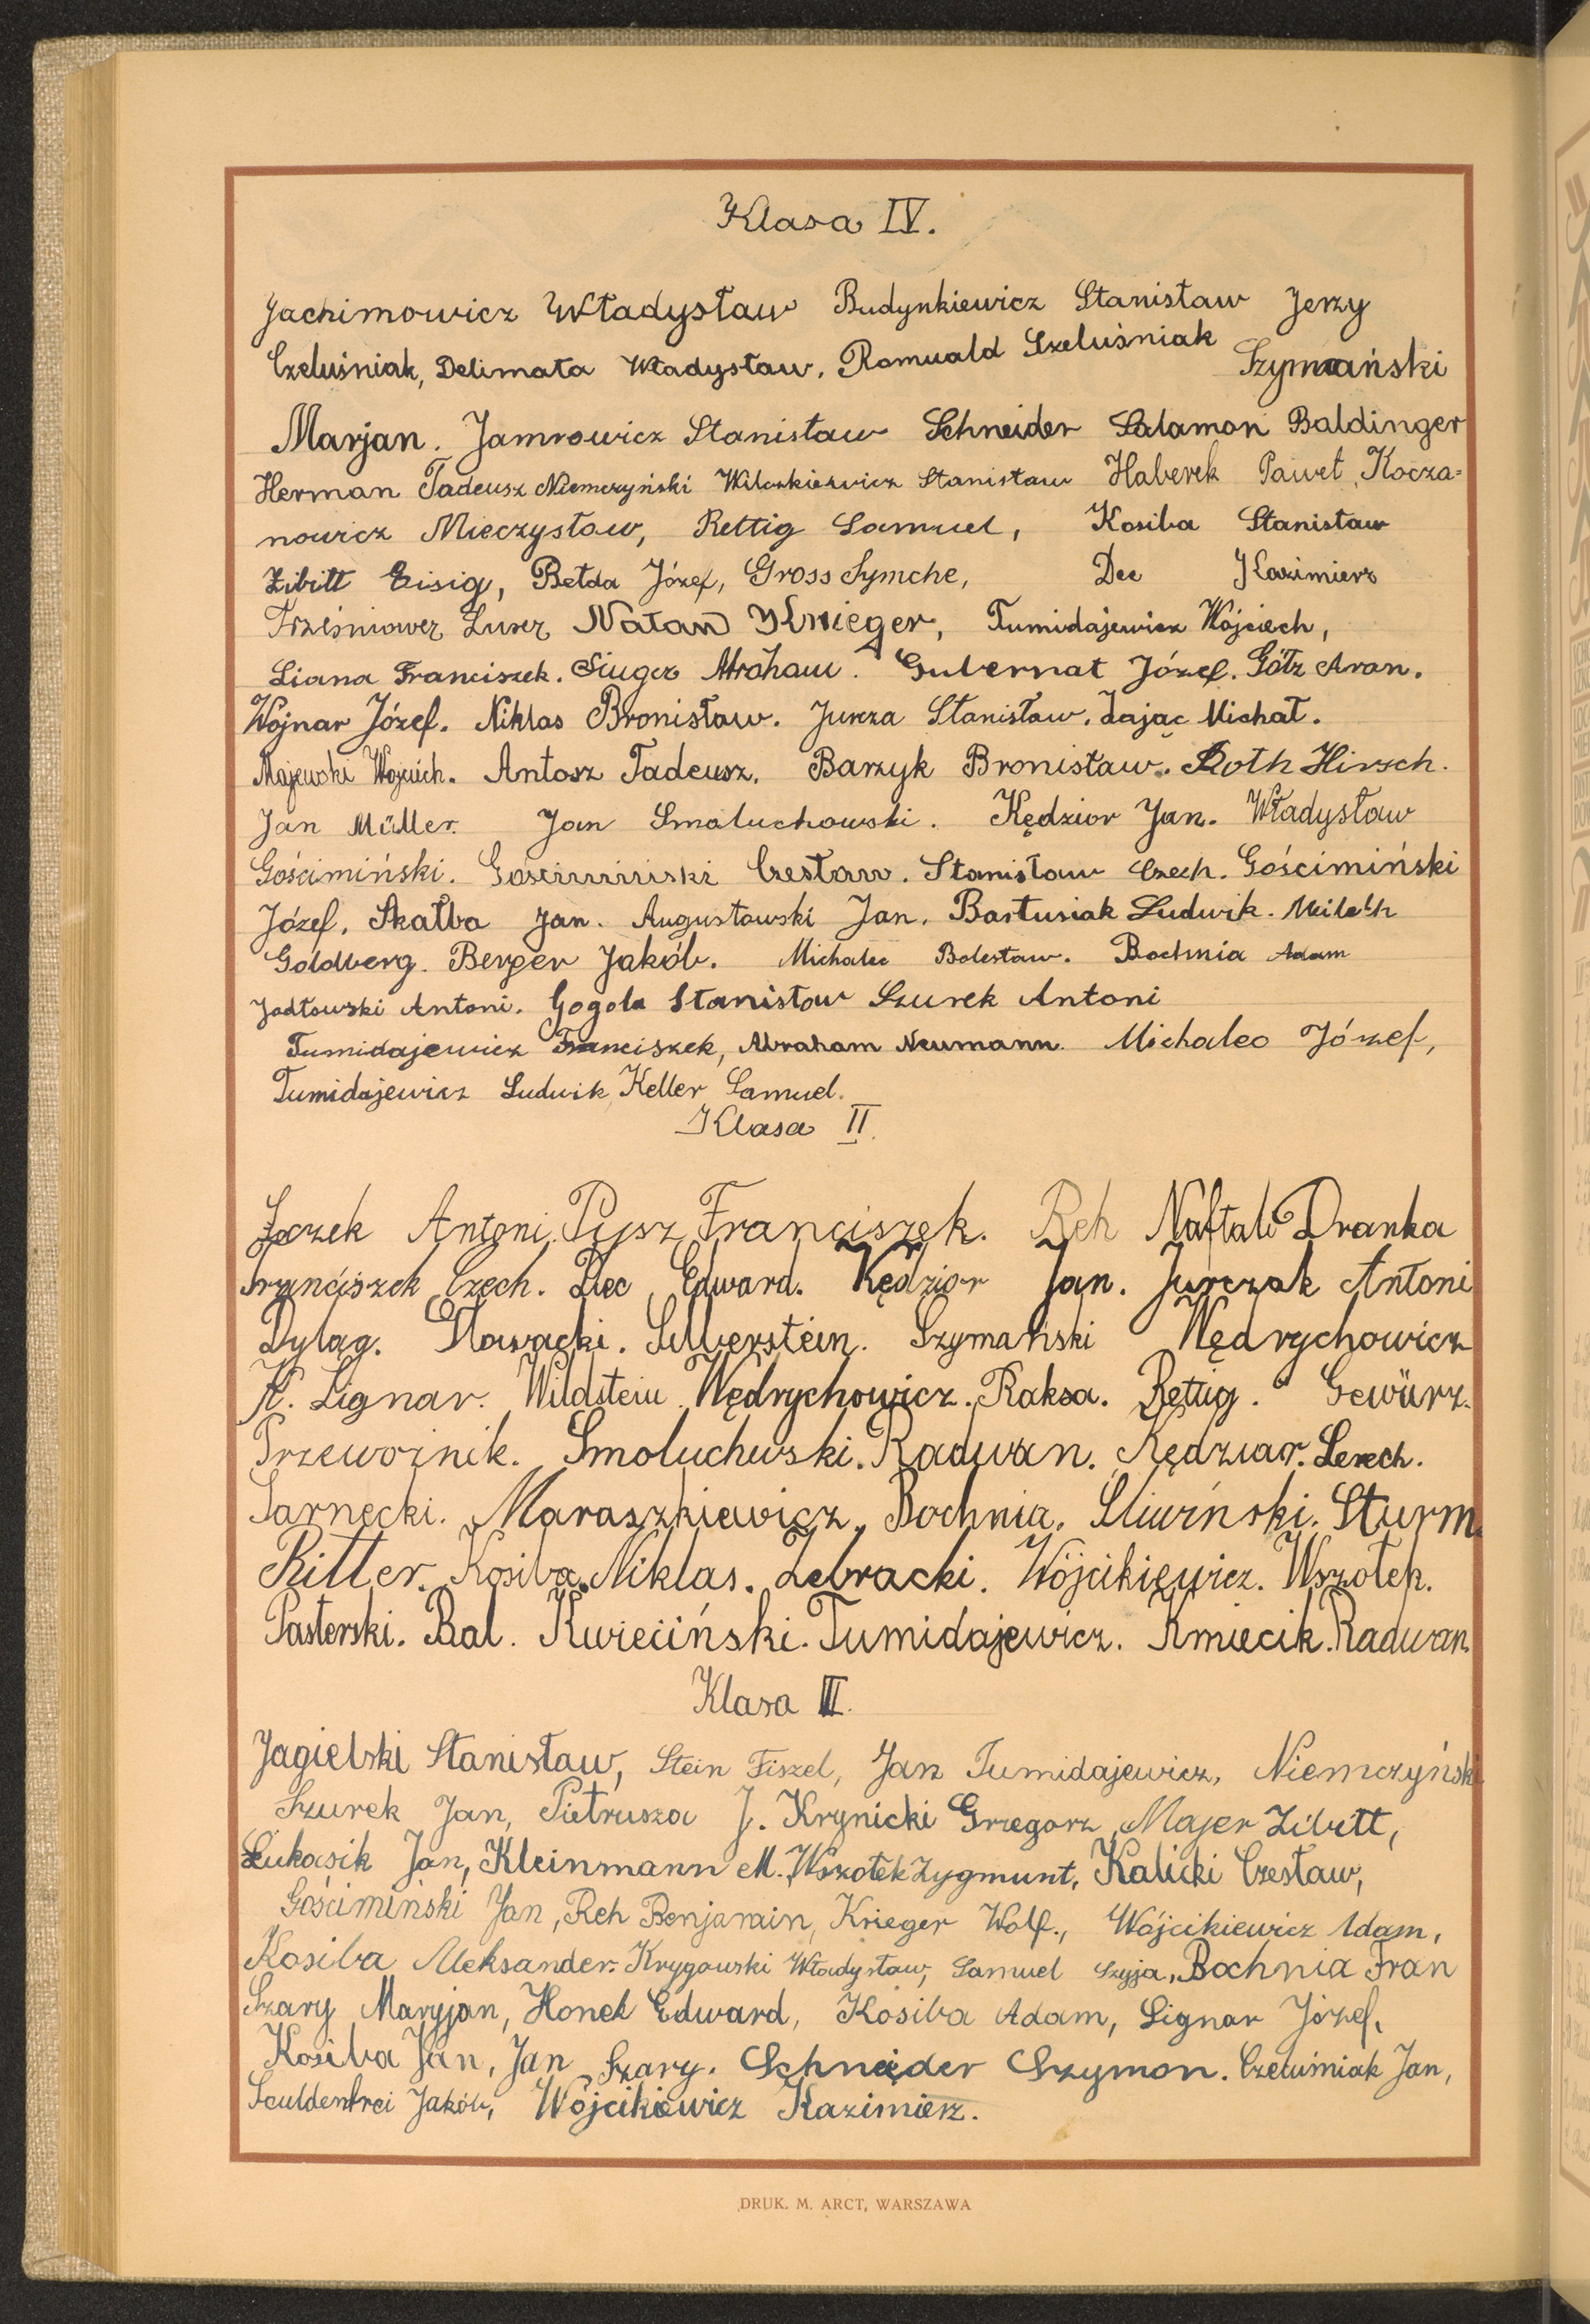 Klasa IV.
Jachimowicz Władysław Budynkiewicz Stanisław Jerzy
Czeluśniak, Delimata Władysław. Romuald Szeluśniak Szymański
Marjan. Jamrowicz Stanisław Schneider Salamon Baldinger
Herman Tadeusz Niemczyński Wilczkiewicz Stanisław Haberek Paweł, Kocza=
nowicz Mieczysław, Rettig Samuel, Kosiba Stanisław
Zibitt Eisig, Betda Józef, Gross Symche, Dec Kazimierz
Trześniower Luser Natan Krieger, Tumidajewicz Wojciech,
Liana Franciszek. Singer Abraham. Gubernat Józef. Götz Aron.
Wojnar Józef. Niklas Bronisław. Jurcza Stanisław. Zając Michał.
Majewski Wojciech. Antosz Tadeusz. Barzyk Bronisław. Roth Hirsch.
Jan Müller. Jan Smaluchowski. Kędzior Jan. Władysław
Gościmiński. Gościmiński Czesław. Stanisław Czech. Gościmiński
Józef. Skałba Jan. Augustowski Jan. Bartusiak Ludwik.
Goldberg. Berger Jakób. Michalec Bolesław. Bochnia Adam
Jodłowski Antoni. Gogola Stanisław Szurek Antoni
Tumidajewicz Franciszek, Abraham Neumann. Michalec Józef,
Tumidajewicz Ludwik, Keller Samuel.
Klasa II.
Antoni. Pysz Franciszek. Reh Naftali Dranka
Franciszek Czech. Dec Edward. Kędzior Jan. Jurczak Antoni
Dyląg. Słowacki. Silberstein. Szymański Wędrychowicz
K. Lignar. Wildstein. Wędrychowicz. Raksa. Rettig. Gewürz.
Przewoźnik. Smoluchwski. Radwan. Kędzior. Lerech.
Sarnecki. Maraszkiewicz. Bochnia. Śliwiński. Sturm.
Ritter. Kosiba. Niklas. Żebracki. Wójcikiewicz. Wszołek.
Pasterski. Bal. Kwieciński. Tumidajewicz. Kmiecik. Radwan.
Klasa III.
Jagielski Stanisław, Stein Fiszel, Jan Tumidajewicz, Niemczyński
Szurek Jan, Pietrusza J. Krynicki Grzegorz, Majer Zibitt,
Łukasik Jan, Kleinmann M. Wszołek Zygmunt, Kalicki Czesław,
Gościmiński Jan, Reh Benjamin, Krieger Wolf., Wójcikiewicz Adam,
Kosiba Aleksander. Krygowski Władysław, Samuel Szyja, Bochnia Fran
Szary Maryjan, Honek Edward, Kosiba Adam, Lignar Józef,
Kosiba Jan, Jan Szary. Schneider Szymon. Czeluśniak Jan,
Sculdenfrei Jakób, Wójcikiewicz Kazimierz.
DRUK. M. ARCT, WARSZAWA